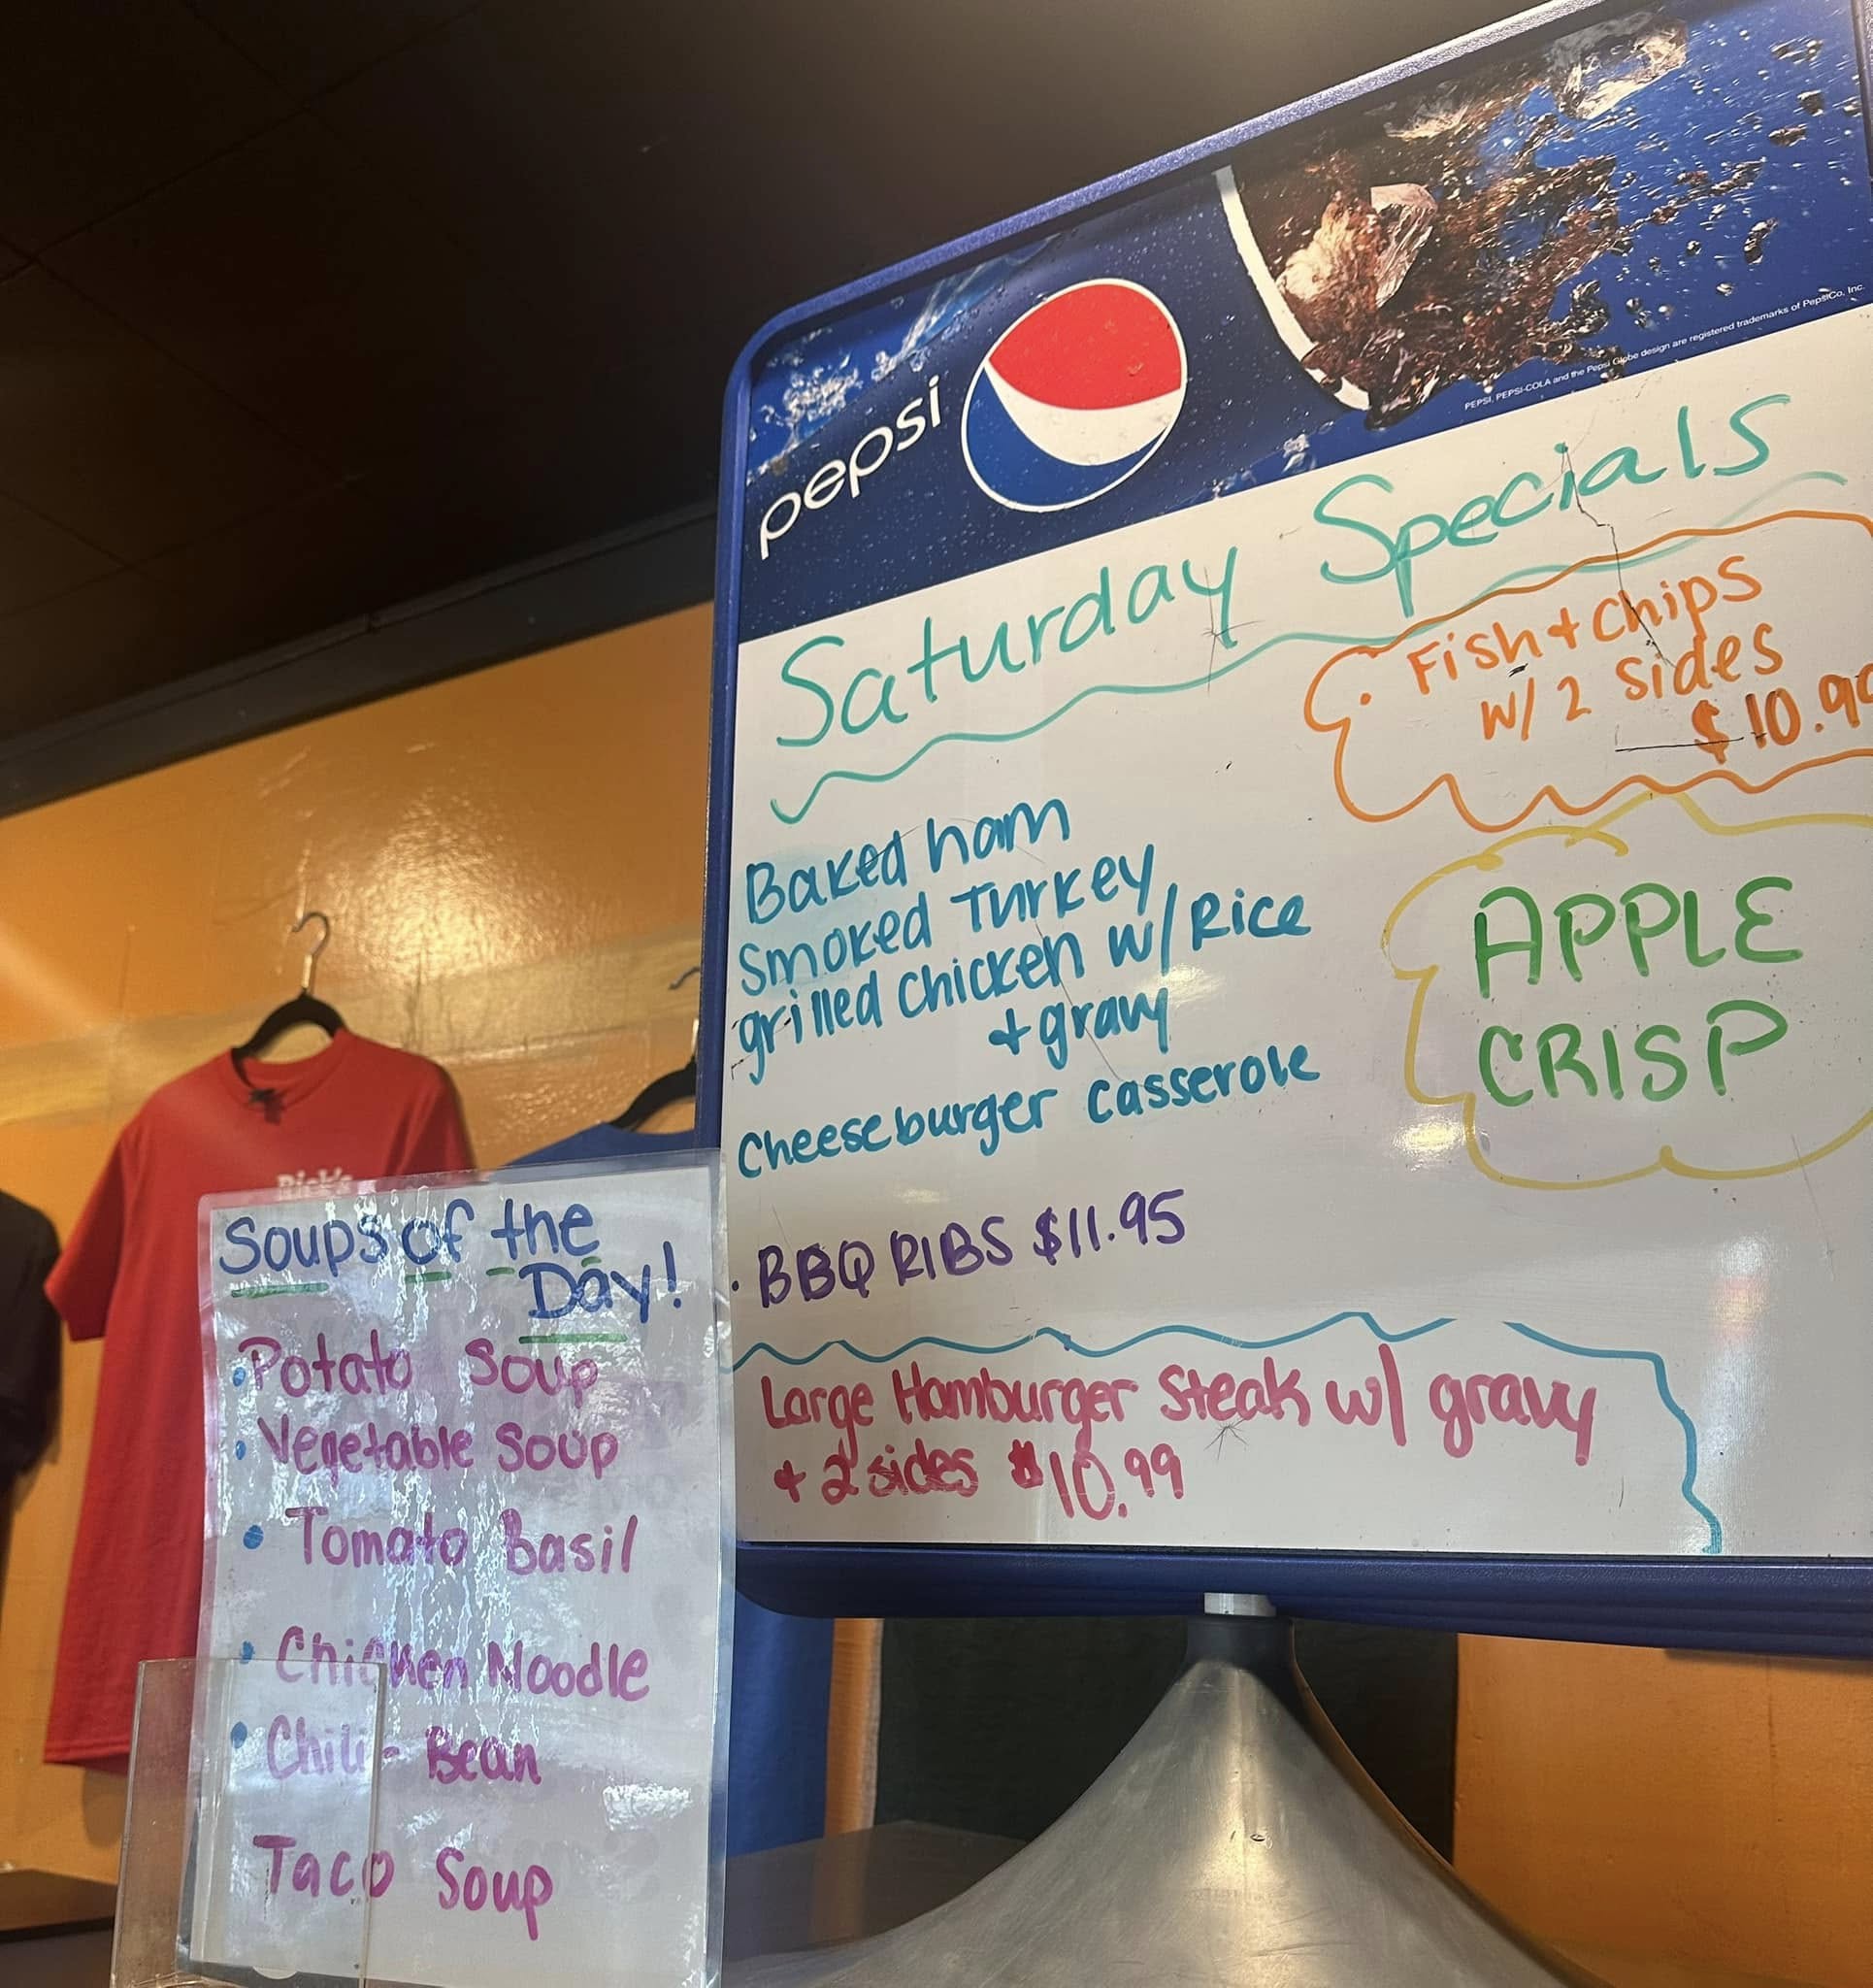 pepsi
PEPSI, PEPSI-COLA and the Pepsi Globe design are registered trademarks of PepsiCo, Inc.
Saturday Specials
• Fish + Chips
w/ 2 Sides
$10.99
Baked ham
Smoked Turkey
grilled Chicken w/ Rice
+ gravy
Cheeseburger Casserole
APPLE
CRISP
• BBQ RIBS $11.95
Large Hamburger Steak w/ gravy
+ 2 sides $10.99
Rick's
Soups of the
Day!
• Potato Soup
• Vegetable Soup
• Tomato Basil
• Chicken Noodle
• Chili - Bean
Taco Soup